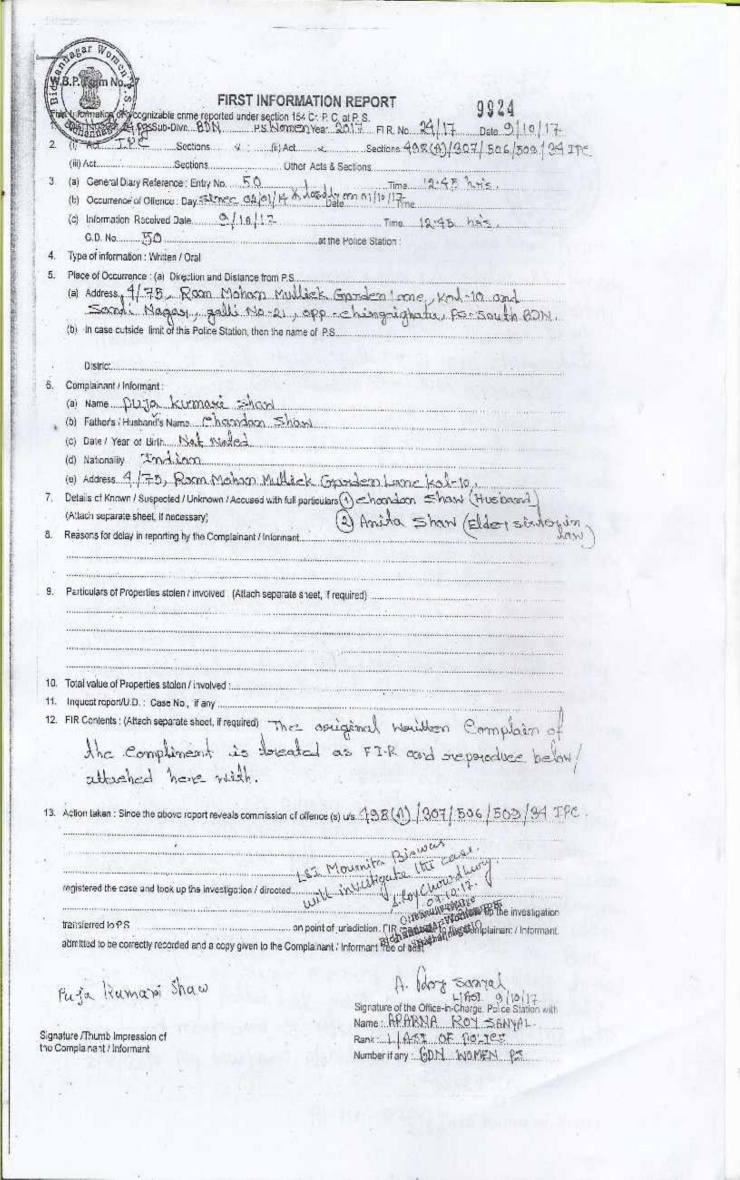 Bidhannagar Women P.S.
W.B.P. Form No. 27
FIRST INFORMATION REPORT
9924
First Information of cognizable crime reported under section 154 Cr. P. C. at P. S.
1. Sub-Divn. BDN P.S. Women Year 2017 F I R. No. 24/17 Date 9/10/17
2. (i) Act IPC Sections : (ii) Act Sections 498(A)/307/506/509/34 IPC
(iii) Act Sections Other Acts & Sections
3. (a) General Diary Reference : Entry No. 50 Time 12:45 hrs.
(b) Occurrence of Offence : Day Since 02/01/14 & lastly on 01/10/17 Date Time
(c) Information Received Date 9/10/17 Time 12:45 hrs.
G.D. No. 50 at the Police Station :
4. Type of information : Written / Oral
5. Place of Occurrence : (a) Direction and Distance from P.S.
(a) Address 4/75, Ram Mohan Mullick Garden Lane, Kol-10 and
Nagar, galli No-21, opp - chingrighata, PS- South BDN.
(b) In case outside limit of this Police Station, then the name of P.S.
District
6. Complainant / Informant :
(a) Name Puja Kumari Shaw
(b) Father's / Husband's Name Chandan Shaw
(c) Date / Year of Birth Not Noted
(d) Nationality Indian
(e) Address 4/75, Ram Mohan Mullick Garden Lane Kol-10.
7. Details of Known / Suspected / Unknown / Accused with full particulars (1) Chandan Shaw (Husband)
(Attach separate sheet, if necessary) (2) Anita Shaw (Elder sister in law)
8. Reasons for delay in reporting by the Complainant / Informant
9. Particulars of Properties stolen / involved : (Attach separate sheet, if required)
10. Total value of Properties stolen / involved :
11. Inquest report/U.D. : Case No., if any
12. FIR Contents : (Attach separate sheet, if required) The original written Complain of
the Compliment is treated as FIR and reproduce below/
attached here with.
13. Action taken : Since the above report reveals commission of offence (s) u/s. 498(A)/307/506/509/34 IPC.
LSI Moumita Biswas
will investigate the case.
registered the case and took up the investigation / directed
Roy Chowdhury
09.10.17.
to take up the investigation
transferred to P.S on point of jurisdiction. FIR Complainant / Informant
admitted to be correctly recorded and a copy given to the Complainant / Informant free of cost
Puja Kumari Shaw
A. Roy Sanyal
L/ASI 9/10/17
Signature of the Office-in-Charge, Police Station with
Name : APARNA ROY SANYAL
Signature /Thumb Impression of
the Complainant / Informant
Rank : L/ASI OF POLICE
Number if any : BDN WOMEN PS